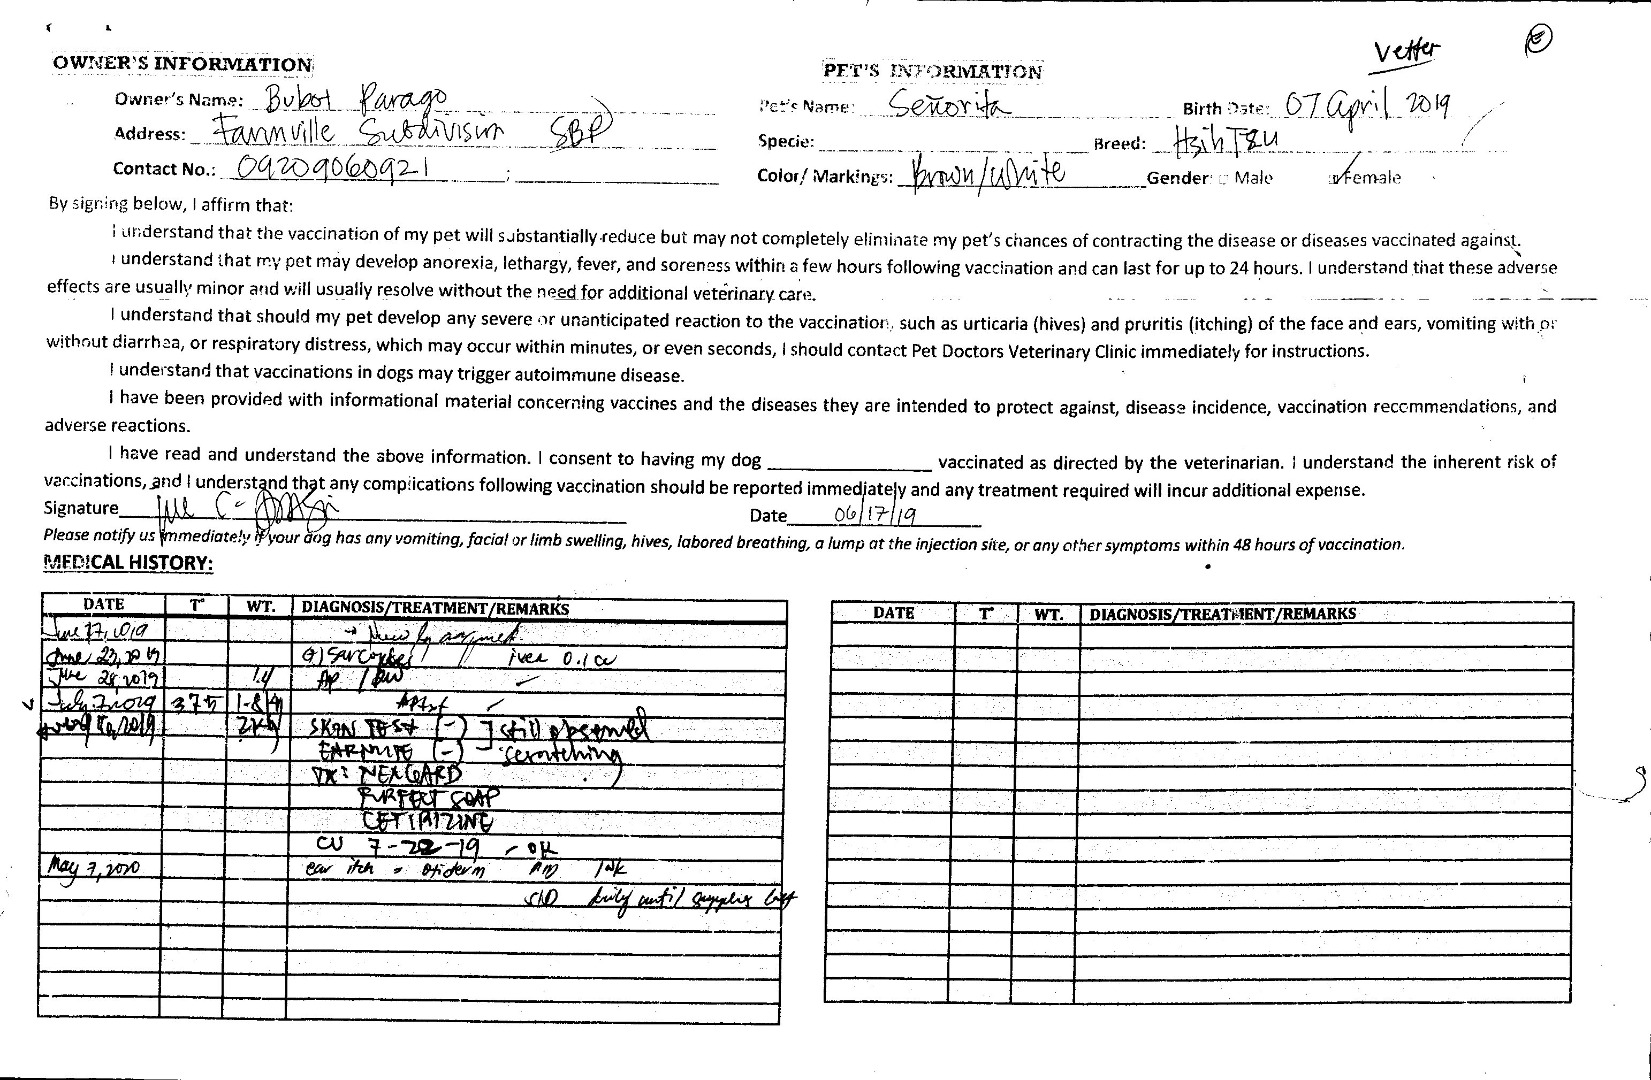 Vetter
E
OWNER'S INFORMATION
PET'S INFORMATION
Owner's Name: Bubot Parago
Pet's Name: Señorita Birth Date: 07 April 2019
Address: Farmville Subdivision SBP
Specie: Breed: Hsih Tzu
Contact No.: 09209060921 ;
Color/ Markings: Brown/White Gender: Male Female
By signing below, I affirm that:
I understand that the vaccination of my pet will substantially reduce but may not completely eliminate my pet's chances of contracting the disease or diseases vaccinated against.
I understand that my pet may develop anorexia, lethargy, fever, and soreness within a few hours following vaccination and can last for up to 24 hours. I understand that these adverse
effects are usually minor and will usually resolve without the need for additional veterinary care.
I understand that should my pet develop any severe or unanticipated reaction to the vaccination, such as urticaria (hives) and pruritis (itching) of the face and ears, vomiting with or
without diarrhea, or respiratory distress, which may occur within minutes, or even seconds, I should contact Pet Doctors Veterinary Clinic immediately for instructions.
I understand that vaccinations in dogs may trigger autoimmune disease.
I have been provided with informational material concerning vaccines and the diseases they are intended to protect against, disease incidence, vaccination recommendations, and
adverse reactions.
I have read and understand the above information. I consent to having my dog ______ vaccinated as directed by the veterinarian. I understand the inherent risk of
vaccinations, and I understand that any complications following vaccination should be reported immediately and any treatment required will incur additional expense.
Signature Date 06/17/19
Please notify us immediately if your dog has any vomiting, facial or limb swelling, hives, labored breathing, a lump at the injection site, or any other symptoms within 48 hours of vaccination.
MEDICAL HISTORY:
DATE T° WT. DIAGNOSIS/TREATMENT/REMARKS
DATE T° WT. DIAGNOSIS/TREATMENT/REMARKS
June 17, 2019
June 23, 2019 iver 0.1 cc
June 28, 2019 1.4
July 7, 2019 37.5 1.8 kg
2kg SKIN TEST (-) still observed
EARMITE (-) scratching
TX: NEXGARD
PURFECT SOAP
CETIRIZINE
CU 7-22-19 - OK
May 7, 2020 ear itch - otiderm 1wk
SID daily until supplies last